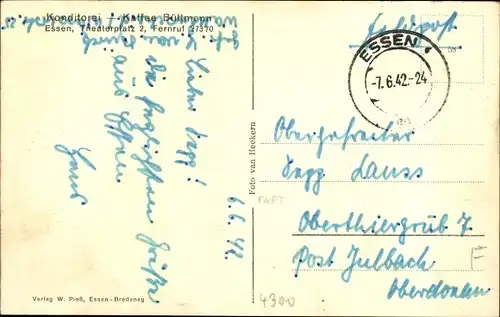 Konditorei - Kaffee Büllmann
Essen, Theaterplatz 2, Fernruf 27370
Feldpost
ESSEN
-7.6.42.-24
6.6.42.
Lieber Sepp!
Die herzlichsten Grüße
aus Essen
Hans
Foto van Heekern
Obergefreiter
Sepp Lauss
Oberthiergrub 7
Post Julbach
Oberdonau
4300
F
Verlag W. Pieß, Essen-Bredeney